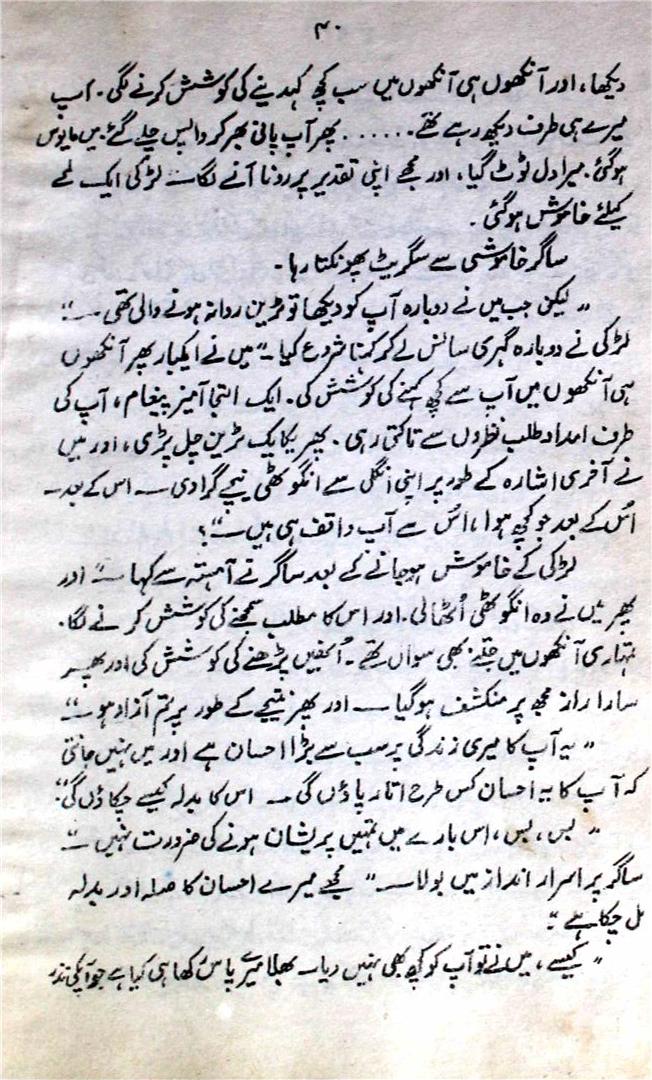 ۴۰
دیکھا، اور آنکھوں ہی آنکھوں میں سب کچھ کہدینے کی کوشش کرنے لگی۔ آپ
میرے ہی طرف دیکھ رہے تھے۔...... پھر آپ پانی بھر کر واپس چلے گئے۔ میں مایوس
ہوگئی۔ میرا دل ٹوٹ گیا، اور مجھے اپنی تقدیر پر رونا آنے لگا ــ لڑکی ایک لمحے
کیلئے خاموش ہوگئی۔
ساگر خاموشی سے سگریٹ پھونکتا رہا۔
"لیکن جب میں نے دوبارہ آپ کو دیکھا تو ٹرین روانہ ہونے والی تھی ــ"
لڑکی نے دوبارہ گہری سانس لے کر کہنا شروع کیا۔ "میں نے ایکبار پھر آنکھوں
ہی آنکھوں میں آپ سے کچھ کہنے کی کوشش کی۔ ایک التجا آمیز پیغام، آپ کی
طرف امداد طلب نظروں سے تاکتی رہی۔ پھر یکایک ٹرین چل پڑی، اور میں
نے آخری اشارہ کے طور پر اپنی انگلی سے انگوٹھی نیچے گرا دی ــ اس کے بعد ــ
اُس کے بعد جو کچھ ہوا، اُس سے آپ واقف ہی ہیں ــ"؟
لڑکی کے خاموش ہوجانے کے بعد ساگر نے آہستہ سے کہا ــ" اور
پھر میں نے وہ انگوٹھی اُٹھالی۔ اور اس کا مطلب سمجھنے کی کوشش کرنے لگا۔
تمہاری آنکھوں میں جتنے بھی سوال تھے۔ اُنھیں پڑھنے کی کوشش کی اور پھر
سارا راز مجھ پر منکشف ہوگیا ــ اور پھر نتیجے کے طور پر تم آزاد ہو ــ"
"یہ آپ کا میری زندگی پر سب سے بڑا احسان ہے اور میں نہیں جانتی
کہ آپ کا یہ احسان کس طرح اتار پاؤں گی ــ اس کا بدلہ کیسے چکاؤں گی"
"بس، بس، اس بارے میں تمہیں پریشان ہونے کی ضرورت نہیں ــ"
ساگر پر اسرار انداز میں بولا ــ" مجھے میرے احسان کا صلہ اور بدلہ
مل چکا ہے"
"کیسے، میں نے تو آپ کو کچھ بھی نہیں دیا ــ بھلا میرے پاس رکھا ہی کیا ہے جو آپکی نذر